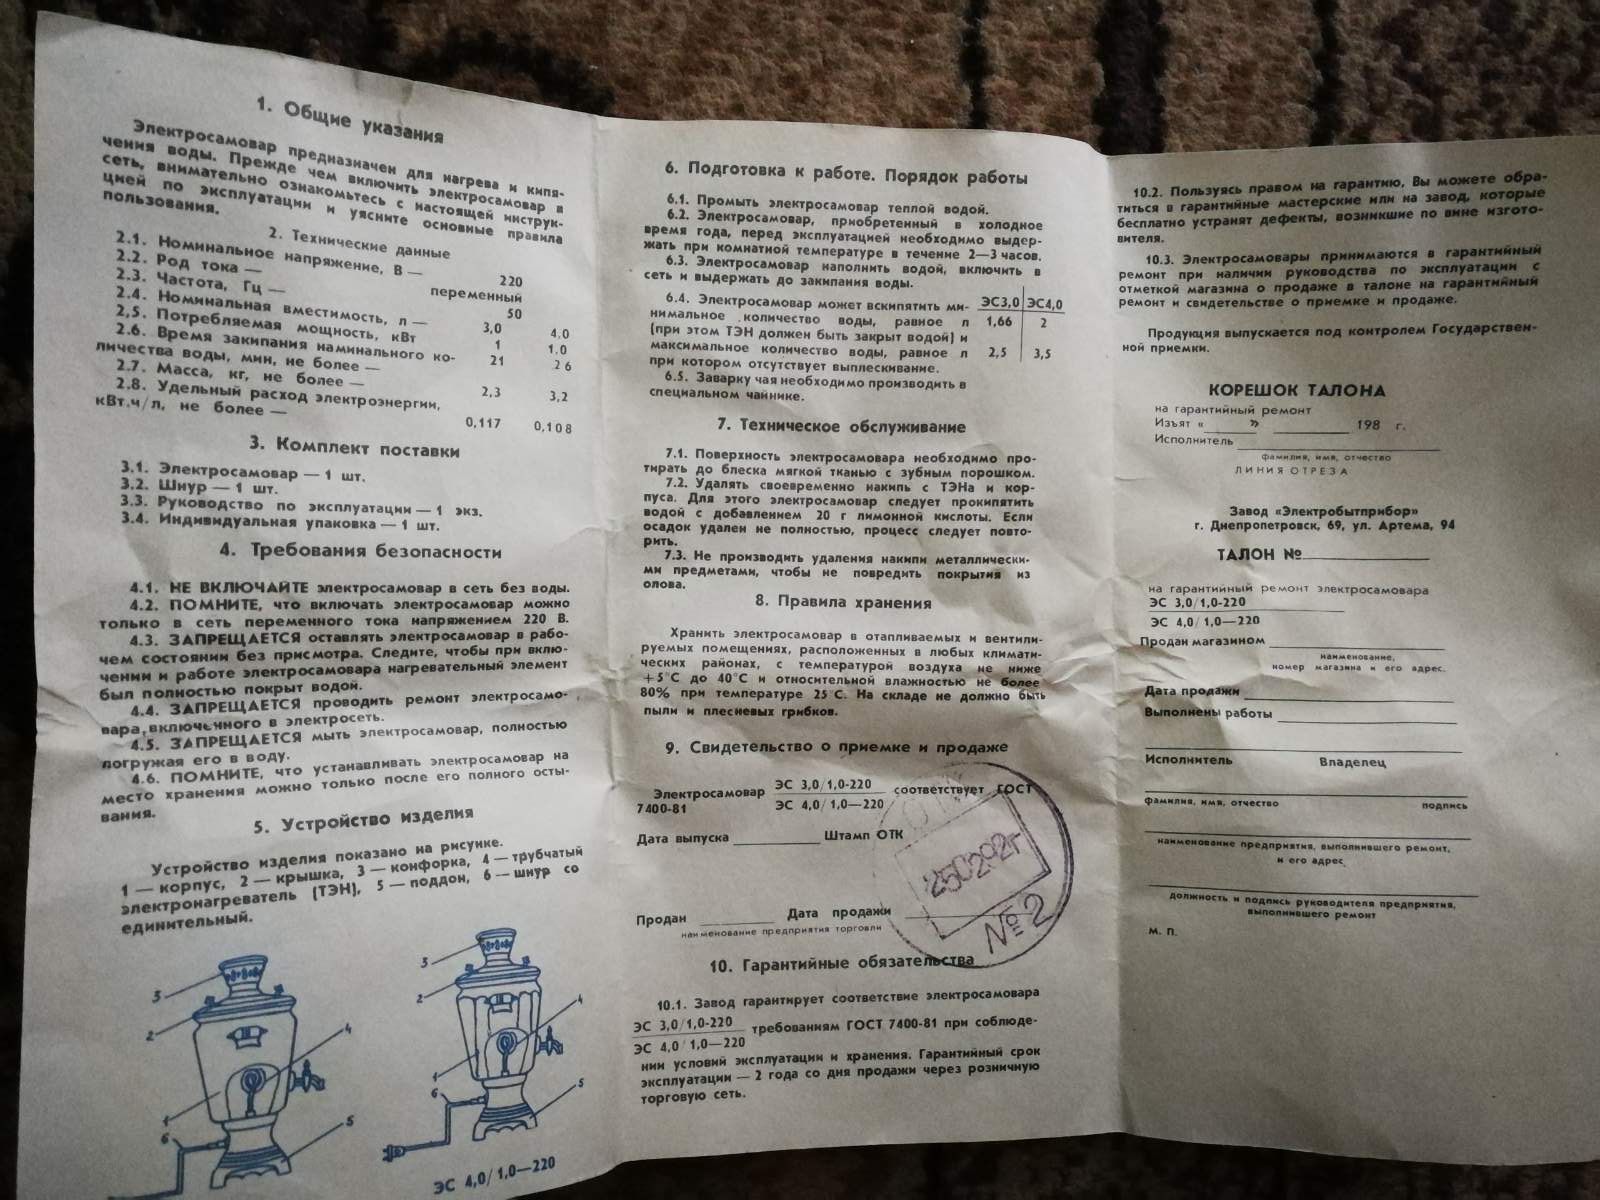 1. Общие указания
Электросамовар предназначен для нагрева и кипя-
чения воды. Прежде чем включить электросамовар в
сеть, внимательно ознакомьтесь с настоящей инструк-
цией по эксплуатации и уясните основные правила
пользования.
2. Технические данные
2.1. Номинальное напряжение, В — 220
2.2. Род тока — переменный
2.3. Частота, Гц — 50
2.4. Номинальная вместимость, л — 3,0 4.0
2,5. Потребляемая мощность, кВт 1 1.0
2.6. Время закипания наминального ко-
личества воды, мин, не более — 21 26
2.7. Масса, кг, не более — 2,3 3,2
2.8. Удельный расход электроэнергии,
кВт.ч/л, не более — 0,117 0,108
3. Комплект поставки
3.1. Электросамовар — 1 шт.
3.2. Шнур — 1 шт.
3.3. Руководство по эксплуатации — 1 экз.
3.4. Индивидуальная упаковка — 1 шт.
4. Требования безопасности
4.1. НЕ ВКЛЮЧАЙТЕ электросамовар в сеть без воды.
4.2. ПОМНИТЕ, что включать электросамовар можно
только в сеть переменного тока напряжением 220 В.
4.3. ЗАПРЕЩАЕТСЯ оставлять электросамовар в рабо-
чем состоянии без присмотра. Следите, чтобы при вклю-
чении и работе электросамовара нагревательный элемент
был полностью покрыт водой.
4.4. ЗАПРЕЩАЕТСЯ проводить ремонт электросамо-
вара, включенного в электросеть.
4.5. ЗАПРЕЩАЕТСЯ мыть электросамовар, полностью
погружая его в воду.
4.6. ПОМНИТЕ, что устанавливать электросамовар на
место хранения можно только после его полного осты-
вания.
5. Устройство изделия
Устройство изделия показано на рисунке.
1 — корпус, 2 — крышка, 3 — конфорка, 4 — трубчатый
электронагреватель (ТЭН), 5 — поддон, 6 — шнур со
единительный.
3
2
4
1
6
5
3
2
4
1
6
5
ЭС 4,0/1,0—220
6. Подготовка к работе. Порядок работы
6.1. Промыть электросамовар теплой водой.
6.2. Электросамовар, приобретенный в холодное
время года, перед эксплуатацией необходимо выдер-
жать при комнатной температуре в течение 2—3 часов.
6.3. Электросамовар наполнить водой, включить в
сеть и выдержать до закипания воды.
6.4. Электросамовар может вскипятить ми- ЭС3,0 ЭС4,0
нимальное количество воды, равное л 1,66 2
(при этом ТЭН должен быть закрыт водой) и
максимальное количество воды, равное л 2,5 3,5
при котором отсутствует выплескивание.
6.5. Заварку чая необходимо производить в
специальном чайнике.
7. Техническое обслуживание
7.1. Поверхность электросамовара необходимо про-
тирать до блеска мягкой тканью с зубным порошком.
7.2. Удалять своевременно накипь с ТЭНа и кор-
пуса. Для этого электросамовар следует прокипятить
водой с добавлением 20 г лимонной кислоты. Если
осадок удален не полностью, процесс следует повто-
рить.
7.3. Не производить удаления накипи металлически-
ми предметами, чтобы не повредить покрытия из
олова.
8. Правила хранения
Хранить электросамовар в отапливаемых и вентили-
руемых помещениях, расположенных в любых климати-
ческих районах, с температурой воздуха не ниже
+5°С до 40°С и относительной влажностью не более
80% при температуре 25°С. На складе не должно быть
пыли и плесневых грибков.
9. Свидетельство о приемке и продаже
Электросамовар ЭС 3,0/1,0-220 соответствует ГОСТ
7400-81 ЭС 4,0/1,0—220
Дата выпуска Штамп ОТК
ОТК
250292г
№2
Продан Дата продажи
наименование предприятия торговли
10. Гарантийные обязательства
10.1. Завод гарантирует соответствие электросамовара
ЭС 3,0/1,0-220 требованиям ГОСТ 7400-81 при соблюде-
ЭС 4,0/1,0—220
нии условий эксплуатации и хранения. Гарантийный срок
эксплуатации — 2 года со дня продажи через розничную
торговую сеть.
10.2. Пользуясь правом на гарантию, Вы можете обра-
титься в гарантийные мастерские или на завод, которые
бесплатно устранят дефекты, возникшие по вине изгото-
вителя.
10.3. Электросамовары принимаются в гарантийный
ремонт при наличии руководства по эксплуатации с
отметкой магазина о продаже в талоне на гарантийный
ремонт и свидетельстве о приемке и продаже.
Продукция выпускается под контролем Государствен-
ной приемки.
КОРЕШОК ТАЛОНА
на гарантийный ремонт
Изъят « » 198 г.
Исполнитель
фамилия, имя, отчество
ЛИНИЯ ОТРЕЗА
Завод «Электробытприбор»
г. Днепропетровск, 69, ул. Артема, 94
ТАЛОН №
на гарантийный ремонт электросамовара
ЭС 3,0/1,0-220
ЭС 4,0/1,0—220
Продан магазином
наименование,
номер магазина и его адрес.
Дата продажи
Выполнены работы
Исполнитель Владелец
фамилия, имя, отчество подпись
наименование предприятия, выполнившего ремонт,
и его адрес
должность и подпись руководителя предприятия,
выполнившего ремонт
М. П.